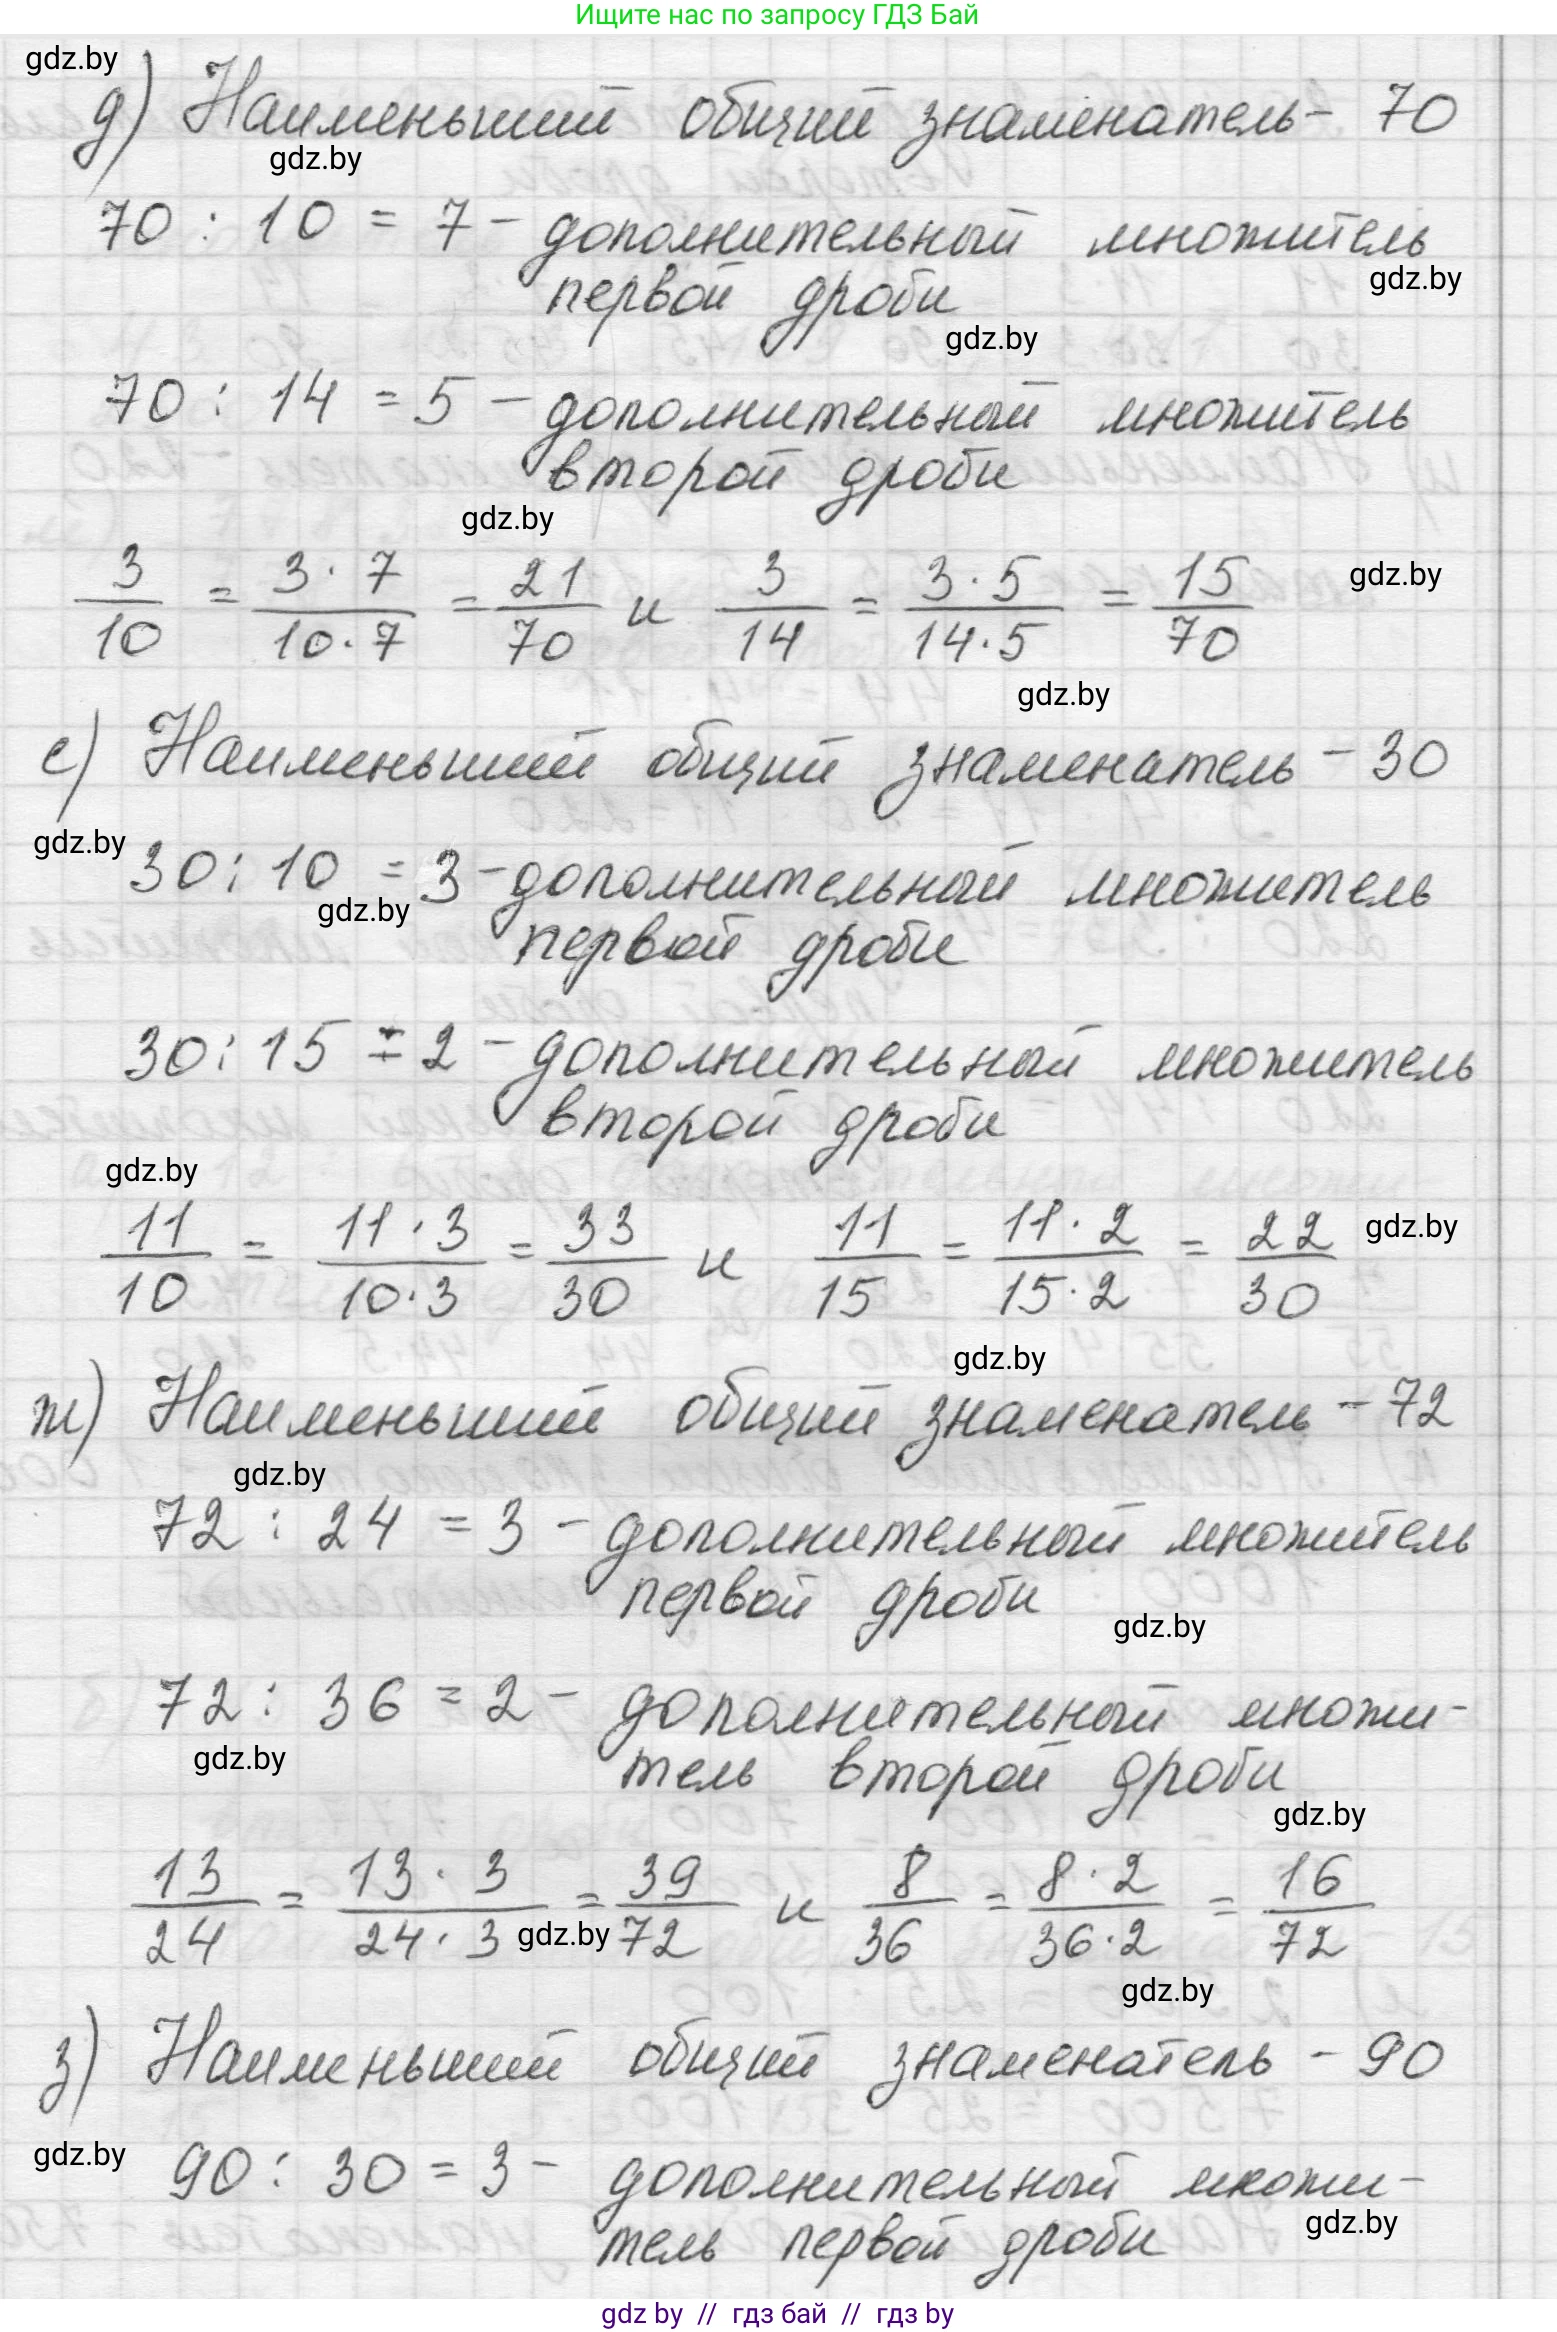 Ищите нас по запросу ГДЗ Бай
gdz.by
д) Наименьший общий знаменатель - 70
gdz.by
70 : 10 = 7 - дополнительный множитель
gdz.by
первой дроби
gdz.by
70 : 14 = 5 - дополнительный множитель
второй дроби
gdz.by
3/10 = 3·7/10·7 = 21/70 и 3/14 = 3·5/14·5 = 15/70
gdz.by
gdz.by
е) Наименьший общий знаменатель - 30
gdz.by
30 : 10 = 3 - дополнительный множитель
gdz.by
первой дроби
30 : 15 = 2 - дополнительный множитель
второй дроби
gdz.by
11/10 = 11·3/10·3 = 33/30 и 11/15 = 11·2/15·2 = 22/30
gdz.by
gdz.by
ж) Наименьший общий знаменатель - 72
gdz.by
72 : 24 = 3 - дополнительный множитель
первой дроби
gdz.by
72 : 36 = 2 - дополнительный множи-
gdz.by
тель второй дроби
gdz.by
13/24 = 13·3/24·3 = 39/72 и 8/36 = 8·2/36·2 = 16/72
gdz.by
gdz.by
з) Наименьший общий знаменатель - 90
gdz.by
90 : 30 = 3 - дополнительный множи-
gdz.by
тель первой дроби
gdz by // гдз бай // гдз by